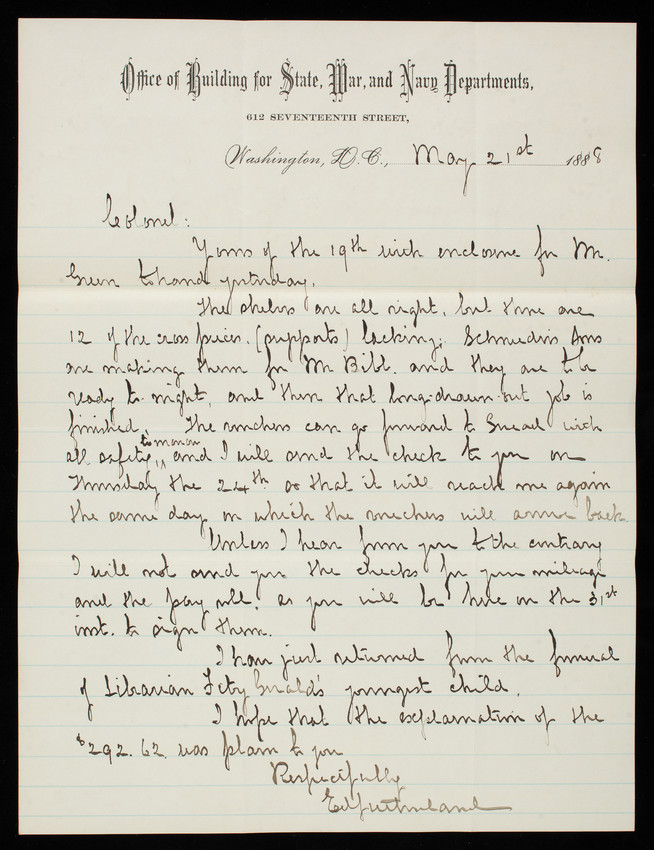 Office of Building for State, War, and Navy Departments,
612 SEVENTEENTH STREET,
Washington, D.C., May 21st 1888
Colonel:
Yours of the 19th with enclosure for Mr.
Green to hand yesterday.
The shelves are all right, but there are
12 of the cross pieces. (supports) lacking;
are making them for Mr Bibb. and they are to be
ready to-night, and then that long-drawn-out job is
finished. The vouchers can go forward to Snead with
all safety, to-morrow and I will send the check to you on
Thursday the 24th so that it will reach me again
the same day on which the vouchers will arrive back
Unless I hear from you to the contrary
I will not send you the checks for your mileage
and the pay roll, as you will be here on the 31st
inst. to sign them.
I have just returned from the funeral
of Librarian FitzGerald's youngest child.
I hope that the explanation of the
$292.62. was plain to you
Respectfully